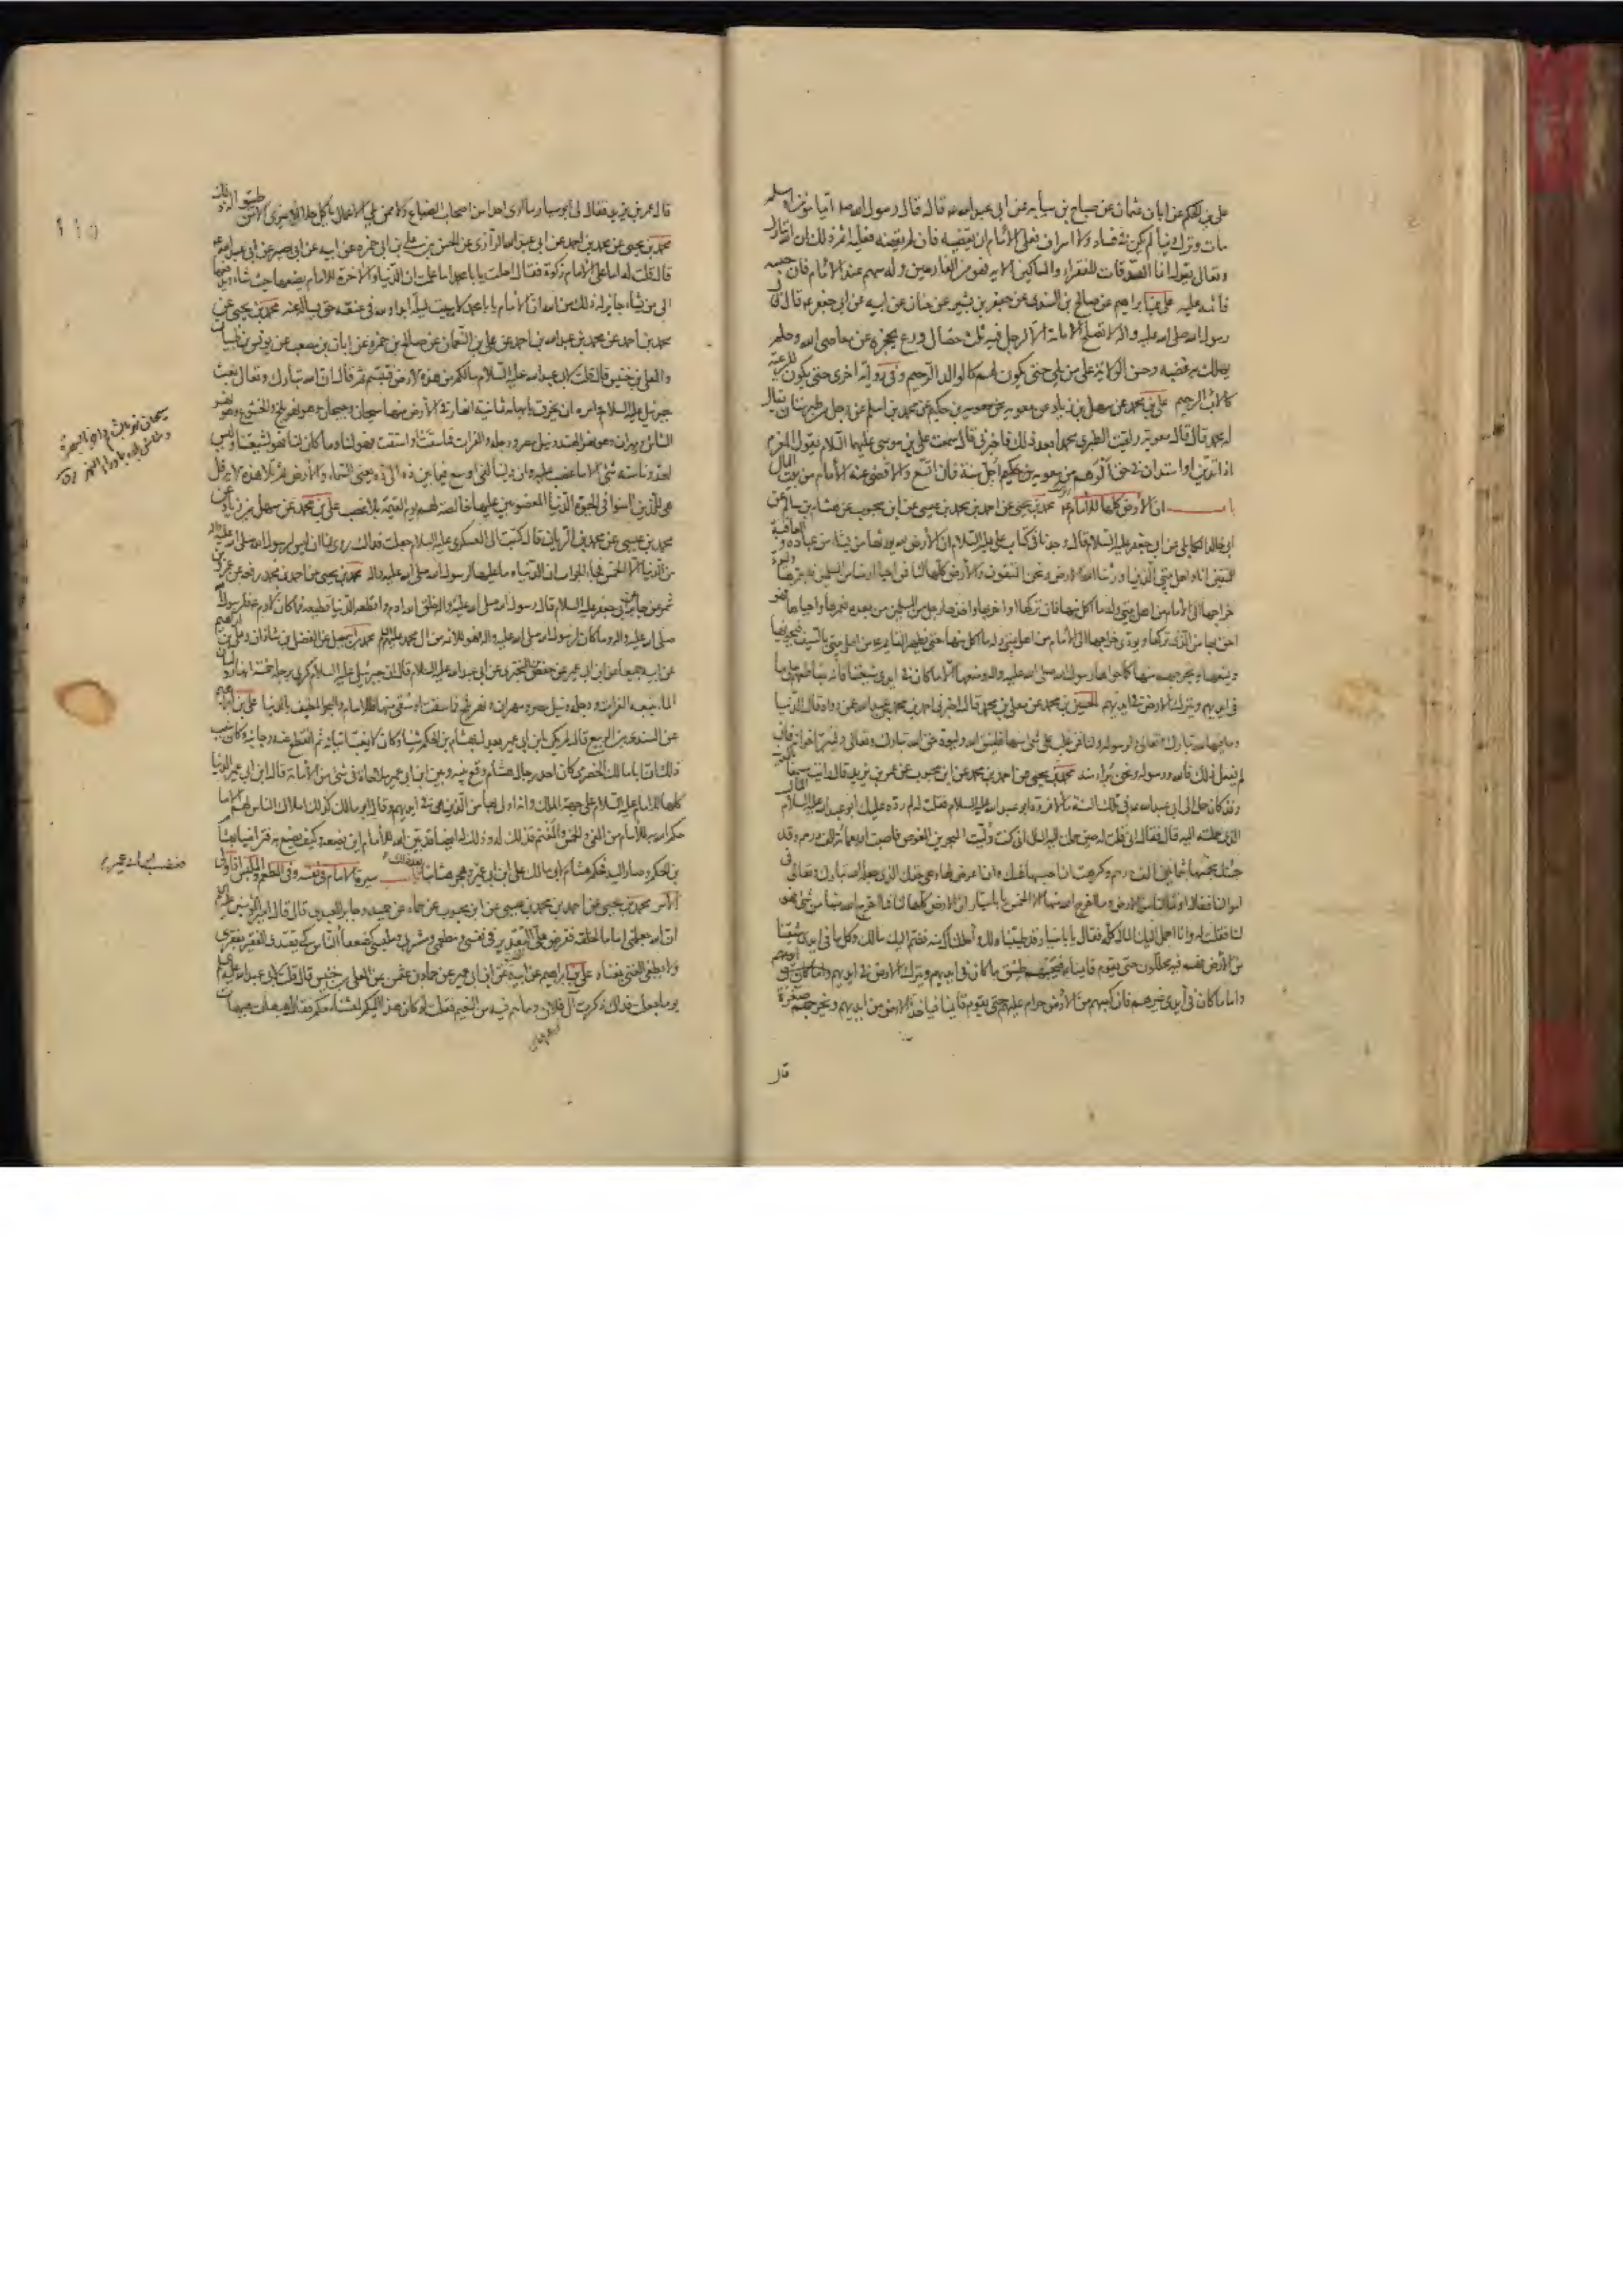 علي بن الحكم عن ابان بن عثمان عن صباح بن سيابه عن ابي عبد الله ع قال قال رسول الله ص ايما مؤمن او مسلم
مات وترك دينا لم يكن في فساد ولا اسراف فعلى الامام ان يقضيه فان لم يقضه فعليه اثم ذلك ان الله تبارك
وتعالى يقول انما الصدقات للفقراء والمساكين الاية فهو من الغارمين وله سهم عند الامام فان حبسه
فاثمه عليه علي بن ابراهيم عن صالح بن السندي عن جعفر بن بشير عن حنان عن ابيه عن ابي جعفر ع قال قال
رسول الله صلى الله عليه واله لا تصلح الامامة الا لرجل فيه ثلث خصال ورع يحجزه عن معاصي الله وحلم
يملك به غضبه وحسن الولاية على من يلي حتى يكون لهم كالوالد الرحيم وفي رواية اخرى حتى يكون للرعية
كالاب الرحيم علي بن محمد عن سهل بن زياد عن معوية بن حكيم عن محمد بن اسلم عن رجل من طبرستان يقال
له محمد قال قال معوية ولقيت الطبري محمدا بعد ذلك فاخبرني قال سمعت علي بن موسى عليهما السلام يقول المغرم
اذا تدين او استدان في حق الوهم من معوية بن حكيم اجل سنة فان اتسع والا قضى عنه الامام من بيت المال
باب ان الارض كلها للامام ع محمد بن يحيى عن احمد بن محمد بن عيسى عن ابن محبوب عن هشام بن سالم عن
ابي خالد الكابلي عن ابي جعفر عليه السلام قال وجدنا في كتاب علي عليه السلام ان الارض لله يورثها من يشاء من عباده والعاقبة
للمتقين انا واهل بيتي الذين اورثنا الله الارض ونحن المتقون والارض كلها لنا فمن احيا ارضا من المسلمين فليعمرها وليؤد
خراجها الى الامام من اهل بيتي وله ما اكل منها فان تركها او اخربها واخذها رجل من المسلمين من بعده فعمرها واحياها فهو
احق بها من الذي تركها ويؤدي خراجها الى الامام من اهل بيتي وله ما اكل منها حتى يظهر القائم ع من اهل بيتي بالسيف فيحويها
ويمنعها ويخرجهم منها كما حواها رسول الله صلى الله عليه واله ومنعها الا ما كان في ايدي شيعتنا فانه يقاطعهم على ما
في ايديهم ويترك الارض في ايديهم الحسين بن محمد عن معلى بن محمد قال اخبرني احمد بن محمد بن عبد الله عمن رواه قال الدنيا
وما فيها لله تبارك وتعالى ولرسوله ولنا فمن غلب على شيء منها فليتق الله وليؤد حق الله تبارك وتعالى وليبر اخوانه فان
لم يفعل ذلك فالله ورسوله ونحن براء منه محمد بن يحيى عن احمد بن محمد عن ابن محبوب عن عمر بن يزيد قال رايت مسمعا بالمدينة
وقد كان حمل الى ابي عبد الله ع في تلك السنة مالا فرده ابو عبد الله عليه السلام فقلت له لم رد عليك ابو عبد الله عليه السلام المال
الذي حملته اليه قال فقال اني قلت له حين حملت اليه المال اني كنت وليت البحرين الغوص فاصبت اربعمائة الف درهم وقد
جئتك بخمسها بثمانين الف درهم وكرهت ان احبسها عنك وان اعرض لها وهي حقك الذي جعله الله تبارك وتعالى في
اموالنا فقال او ما لنا من الارض وما اخرج الله منها الا الخمس يا ابا سيار ان الارض كلها لنا فما اخرج الله منها من شيء فهو
لنا فقلت له وانا احمل اليك المال كله فقال يا ابا سيار قد طيبناه لك واحللناك منه فضم اليك مالك وكل ما في ايدي شيعتنا
من الارض فهم فيه محللون حتى يقوم قايمنا فيجبيهم طسق ما كان في ايديهم ويترك الارض في ايديهم
واما ما كان في ايدي غيرهم فان كسبهم من الارض حرام عليهم حتى يقوم قايمنا فياخذ الارض من ايديهم ويخرجهم صغرة
قال
قال عمر بن يزيد فقال لي ابو سيار ما ارى احدا من اصحاب الضياع ولا ممن يلي الاعمال ياكل حلالا غيري الا من طيبوا له ذلك
محمد بن يحيى عن محمد بن احمد عن ابي عبد الله الرازي عن الحسن بن علي بن ابي حمزه عن ابيه عن ابي بصير عن ابي عبد الله ع
قال قلت له اما على الامام زكوة فقال احلت يا با محمد اما علمت ان الدنيا والاخرة للامام يضعها حيث شاء ويدفعها
الى من يشاء جايز له ذلك من الله ان الامام يا با محمد لا يبيت ليلة ابدا ولله في عنقه حق يساله عنه محمد بن يحيى عن
محمد بن احمد عن محمد بن عبد الله بن احمد عن علي بن النعمان عن صالح بن حمزه عن ابان بن مصعب عن يونس بن ظبيان
والمعلى بن خنيس قال قلت لابي عبد الله عليه السلام ما لكم من هذه الارض فتبسم ثم قال ان الله تبارك وتعالى بعث
جبرئيل عليه السلام وامره ان يخرق بابهامه ثمانية انهار في الارض منها سيحان وجيحان وهو نهر بلخ والخشوع وهو نهر
الشاش ومهران وهو نهر الهند ونيل مصر ودجله والفرات فما سقت او استقت فهو لنا وما كان لنا فهو لشيعتنا وليس
لعدونا منه شيء الا ما غصب عليه وان ولينا لفي اوسع فيما بين ذه الى ذه يعني السماء والارض ثم تلا هذه الاية قل
هي للذين امنوا في الحيوة الدنيا المغصوبين عليها خالصة لهم يوم القيمة بلا غصب علي بن محمد عن سهل بن زياد عن
محمد بن عيسى عن محمد بن الريان قال كتبت الى العسكري عليه السلام جعلت فداك روي لنا ان ليس لرسول الله صلى الله عليه واله
من الدنيا الا الخمس فجاء الجواب ان الدنيا وما عليها لرسول الله صلى الله عليه واله محمد بن يحيى عن احمد بن محمد رفعه عن عمرو بن
شمر عن جابر عن ابي جعفر عليه السلام قال قال رسول الله صلى الله عليه واله خلق الله ادم واقطعه الدنيا قطيعة فما كان لادم فلرسول الله
صلى الله عليه واله وما كان لرسول الله صلى الله عليه واله فهو للائمة من ال محمد عليهم السلام محمد بن اسمعيل عن الفضل بن شاذان وعلي بن ابراهيم
عن ابيه جميعا عن ابن ابي عمير عن حفص بن البختري عن ابي عبد الله عليه السلام قال ان جبرئيل عليه السلام كرى برجله خمسة انهار ولسان
الماء يتبعه الفرات ودجله ونيل مصر ومهران ونهر بلخ فما سقت او سقي منها فللامام والبحر المطيف بالدنيا علي بن ابراهيم
عن السندي بن الربيع قال لم يكن ابن ابي عمير يعدل بهشام بن الحكم شيئا وكان لا يغب اتيانه ثم انقطع عنه وخالفه وكان سبب
ذلك ان ابا مالك الحضرمي كان احد رجال هشام وقع بينه وبين ابن ابي عمير ملاحاة في شيء من الامامة قال ابن ابي عمير الدنيا
كلها للامام عليه السلام على جهة الملك وانه اولى بها من الذين هي في ايديهم وقال ابو مالك كذلك املاك الناس لهم الا ما
حكم الله به للامام من الفيء والخمس والمغنم فذلك له وذلك ايضا قد بين الله للامام اين يضعه وكيف يصنع به فتراضيا بهشام
بن الحكم وصارا اليه فحكم هشام لابي مالك على ابن ابي عمير فغضب ابن ابي عمير وهجر هشاما بعد ذلك باب سيرة الامام في نفسه وفي المطعم والملبس اذا ولي
الامر محمد بن يحيى عن احمد بن محمد بن عيسى عن ابن محبوب عن حماد عن حميد وجابر العبدي قال قال امير المؤمنين عليه السلام
ان الله جعلني اماما لخلقه ففرض علي التقدير في نفسي ومطعمي ومشربي وملبسي كضعفاء الناس كي يقتدي الفقير بفقري
ولا يطغي الغني غناه علي بن ابراهيم عن ابيه عن ابن ابي عمير عن حماد بن عثمن عن المعلى بن خنيس قال قلت لابي عبد الله عليه السلام
يوما جعلت فداك ذكرت آل فلان وما هم فيه من النعيم فقلت لو كان هذا اليكم لعشنا معكم فقال هيهات